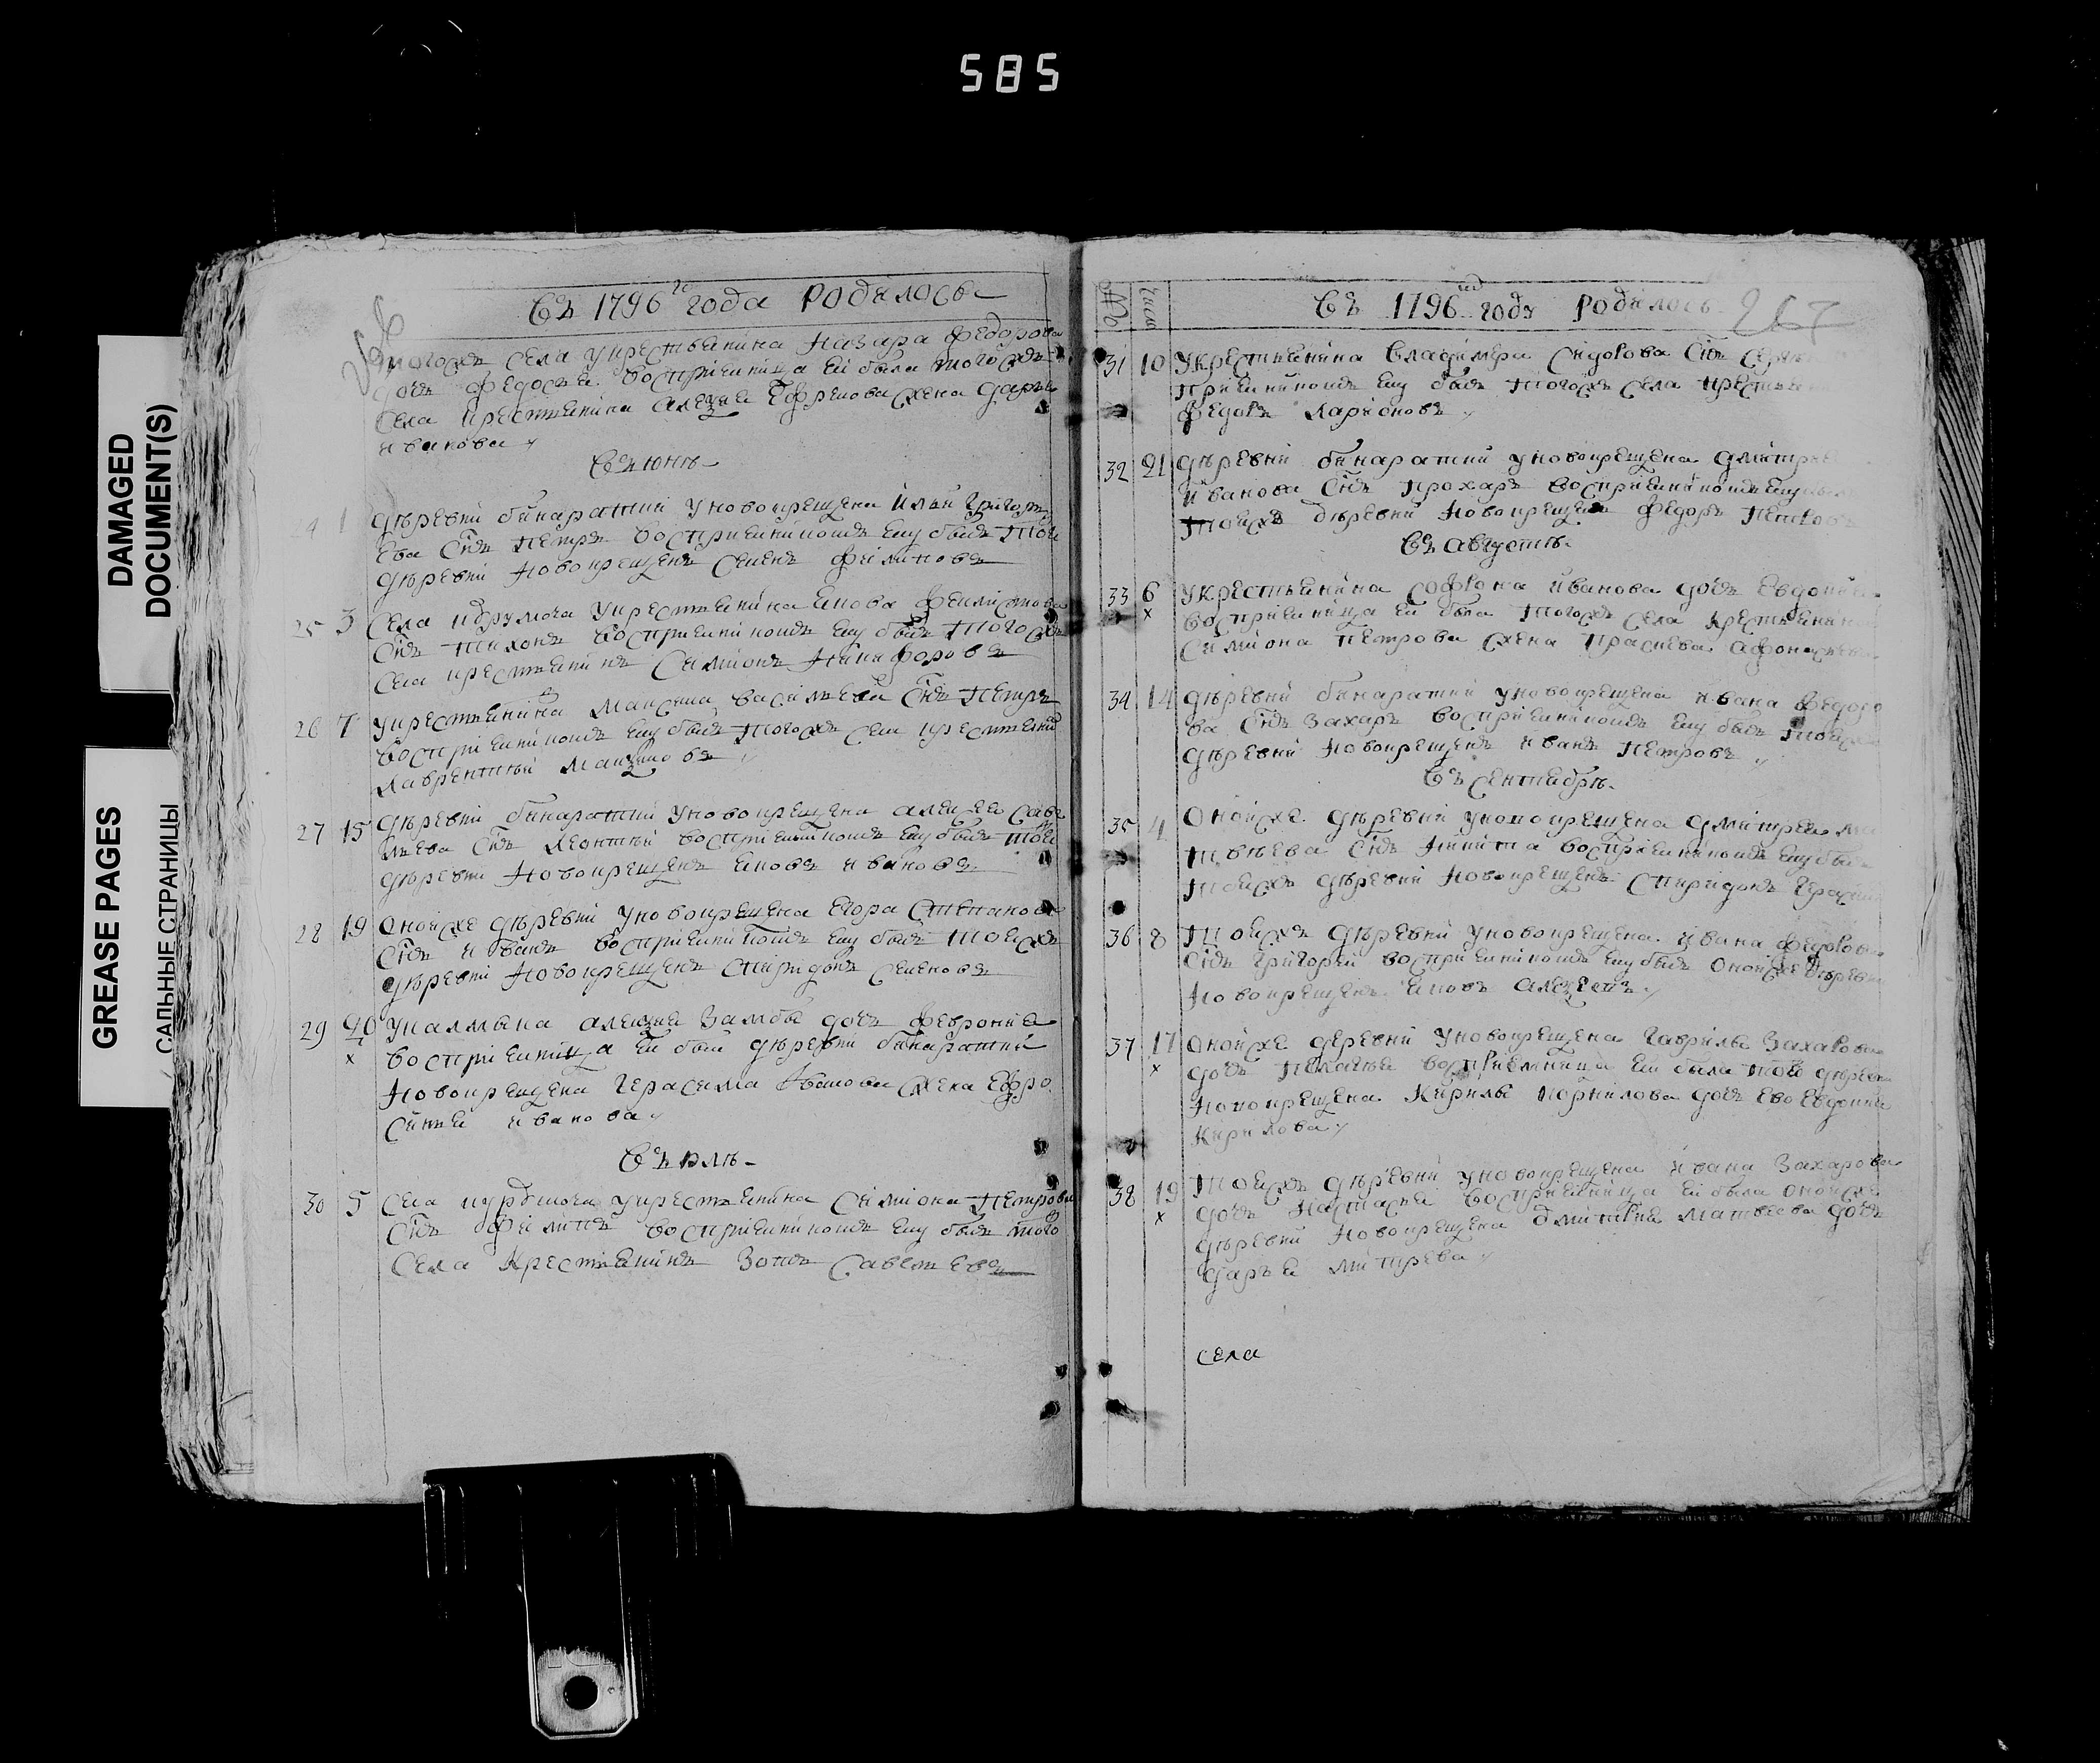 585
DAMAGED
DOCUMENT(S)
GREASE PAGES
САЛЬНЫЕ СТРАНИЦЫ
Въ 1796го года родилось
тогожъ села укрестьянина Назара Федорова
дочь Федосья воспріемница ей была тогожъ
села крестьянина Алексея Ефремова жена Дарья
иванова
Въ июнѣ
1 дѣревни бинаратки уновокрещена Ильи Григорь
ева сiнъ Петръ воспріемникомъ ему былъ той
дѣревни новокрещенъ Семенъ Филиповъ
25 3 Села укрестьянина
сiнъ Тихонъ воспріемникомъ ему былъ тогожъ
села крестьянинъ Симионъ Никифоровъ
26 7 укрестьянина Максима Васильева сiнъ Петръ
воспріемникомъ ему былъ тогожъ села крестьянин
Лаврентий Максимовъ
27 15 дѣревни бинаратки уновокрещена алексея Саве
льева сiнъ Леонтий воспріемникомъ ему былъ той
дѣревни новокрещенъ иванова
28 19 онойже дѣревни уновокрещена Егора Степанова
сiнъ иванъ воспріемникомъ ему былъ тоежъ
дѣревни новокрещенъ Спиридонъ Семеновъ
29 20 алексея дочь феврония
x воспріемница ей была дѣревни бинаратки
новокрещена Герасима иванова жена Ефро
синья иванова
Въ июлѣ
30 5 Села укрестьянина Симиона Петрова
сiнъ Филипъ воспріемникомъ ему былъ того
села крестьянинъ Савельевъ
№ число
Въ 1796мъ году родилось 267
31 10 укрестьянина Владимера Сидорова сiнъ
пріемникомъ ему былъ тогожъ села
Федоръ Ларионовъ
32 21 дѣревни бинаратки уновокрещена дмитрия
иванова сiнъ Прохаръ воспріемникомъ ему
тоежъ дѣревни новокрещенъ Федоръ Петровъ
Въ августѣ
33 6 укрестьянина Софрона иванова дочь Евдокия
x воспріемница ей была тогожъ села крестьянина
Симиона Петрова жена Прасковья
34 14 дѣревни бинаратки уновокрещена ивана Федоро
ва сiнъ Захаръ воспріемникомъ ему былъ тоежъ
дѣревни новокрещенъ иванъ Петровъ
Въ Сентябрѣ
35 4 онойже дѣревни уновокрещена дмитрея ма
твѣева сiнъ Никита воспріемникомъ ему бы
тоежъ дѣревни новокрещенъ Спиридонъ
36 8 тоежъ дѣревни уновокрещена ивана Федорова
сiнъ Григорей воспріемникомъ ему былъ онойже дѣревни
новокрещенъ
37 17 онойже деревни уновокрещена Гаврилы Захарова
x дочь Пелагея воспріемница ей была той дѣревни
новокрещена Кирилы Корнилова дочь ево Евдокия
Кирилова
38 19 тоежъ дѣревни уновокрещена ивана Захарова
x дочь Настасья воспріемница ей была онойже
дѣревни новокрещена дмитрия Матвеева дочь
дарья митрева
села